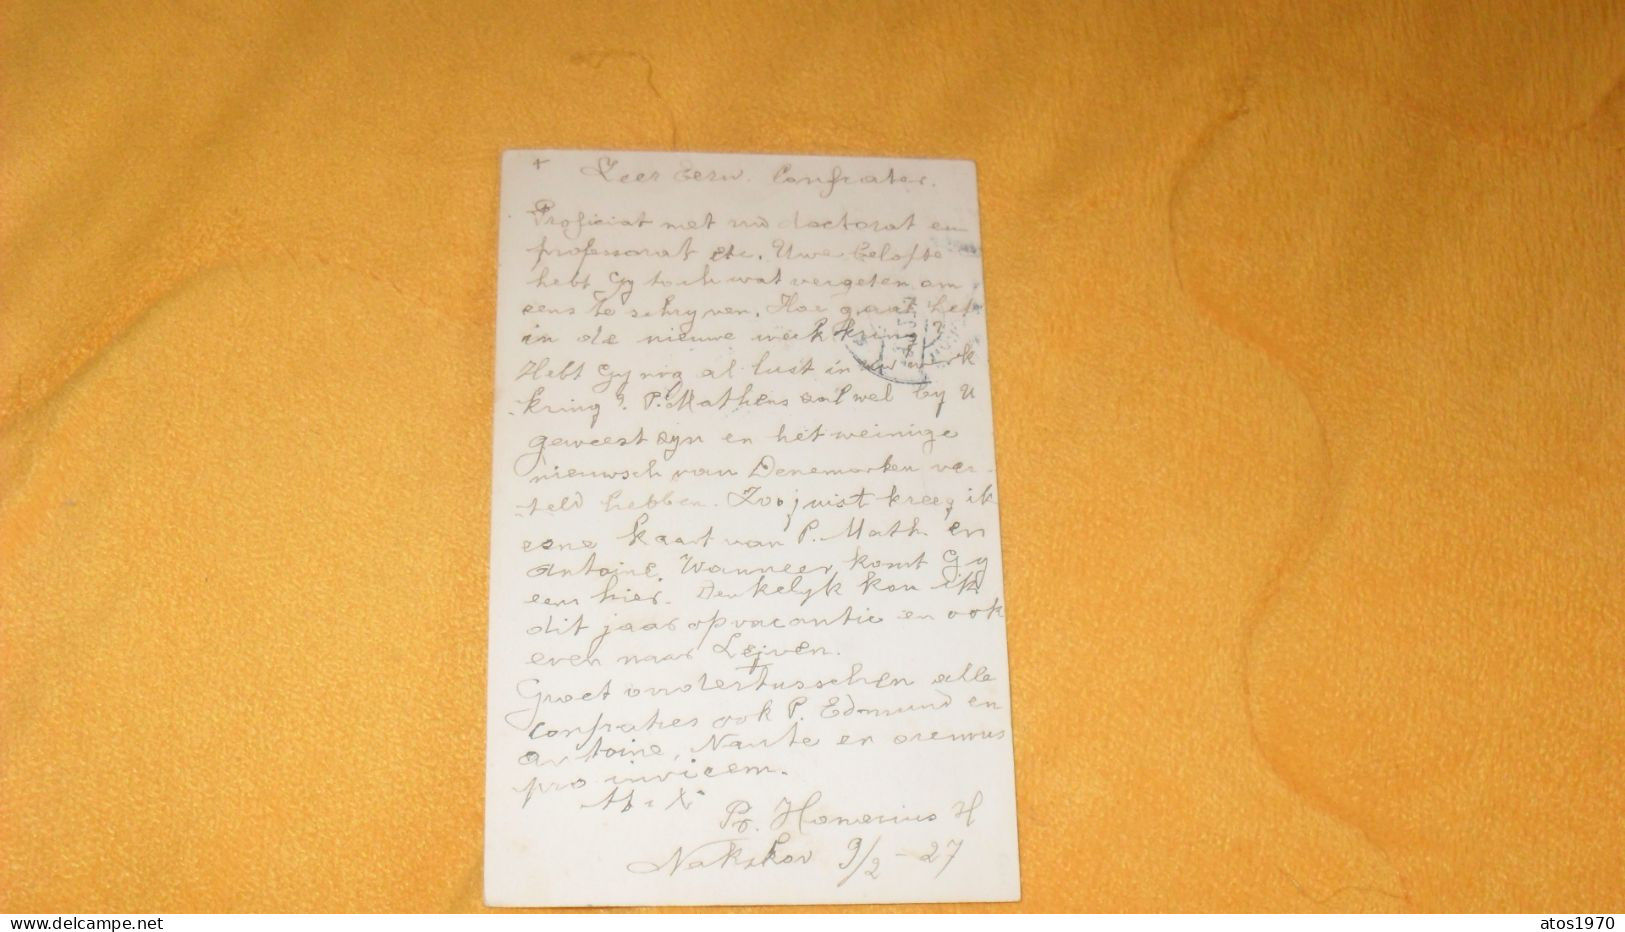 + Zeer Eerw. Confrater.
Proficiat met uw doctorat en
professorat etc. Uwe belofte
hebt Gy toch wat vergeten om
eens te schryven. Hoe gaat het
in de nieuwe werkkring?
Hebt Gy nog al lust in uw werk
kring? P. Mathens zal wel by U
geweest zyn en het weinige
nieuwsch van Denemarken ver-
teld hebben. Zoo juist kreeg ik
eene kaart van P. Math en
Antoine. Wanneer komt Gy
eens hier. Denkelyk kan ik
dit jaar op vacantie en ook
even naar Leuven.
Groet ondertusschen alle
confraties ook P. Edmund en
Antoine, Nante en oremus
pro invicem.
Pr. Honorius H
Nakskov 9/2 - 27
www.delcampe.net
atos1970